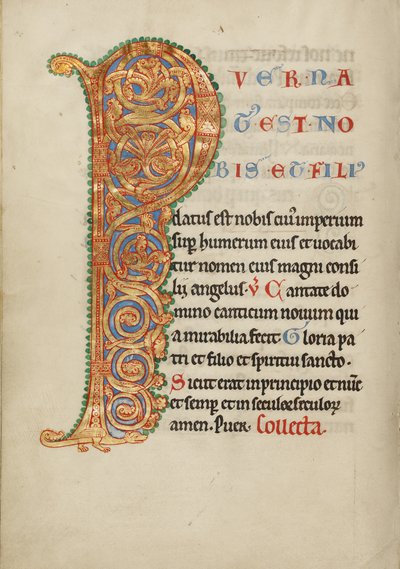 P VER·NA
T·EST·NO
BIS·ET·FILI
datus est nobis cui' imperium
sup humerum eius et uocabi
tur nomen eius magni consi
lij angelus. V Cantate do
mino canticum nouum qui
a mirabilia fecit. Gloria pa
tri et filio et spiritui sancto.
Sicut erat in principio et nunc
et semp et in seculoꝝ seculoꝝ
amen. Puer. Collecta.